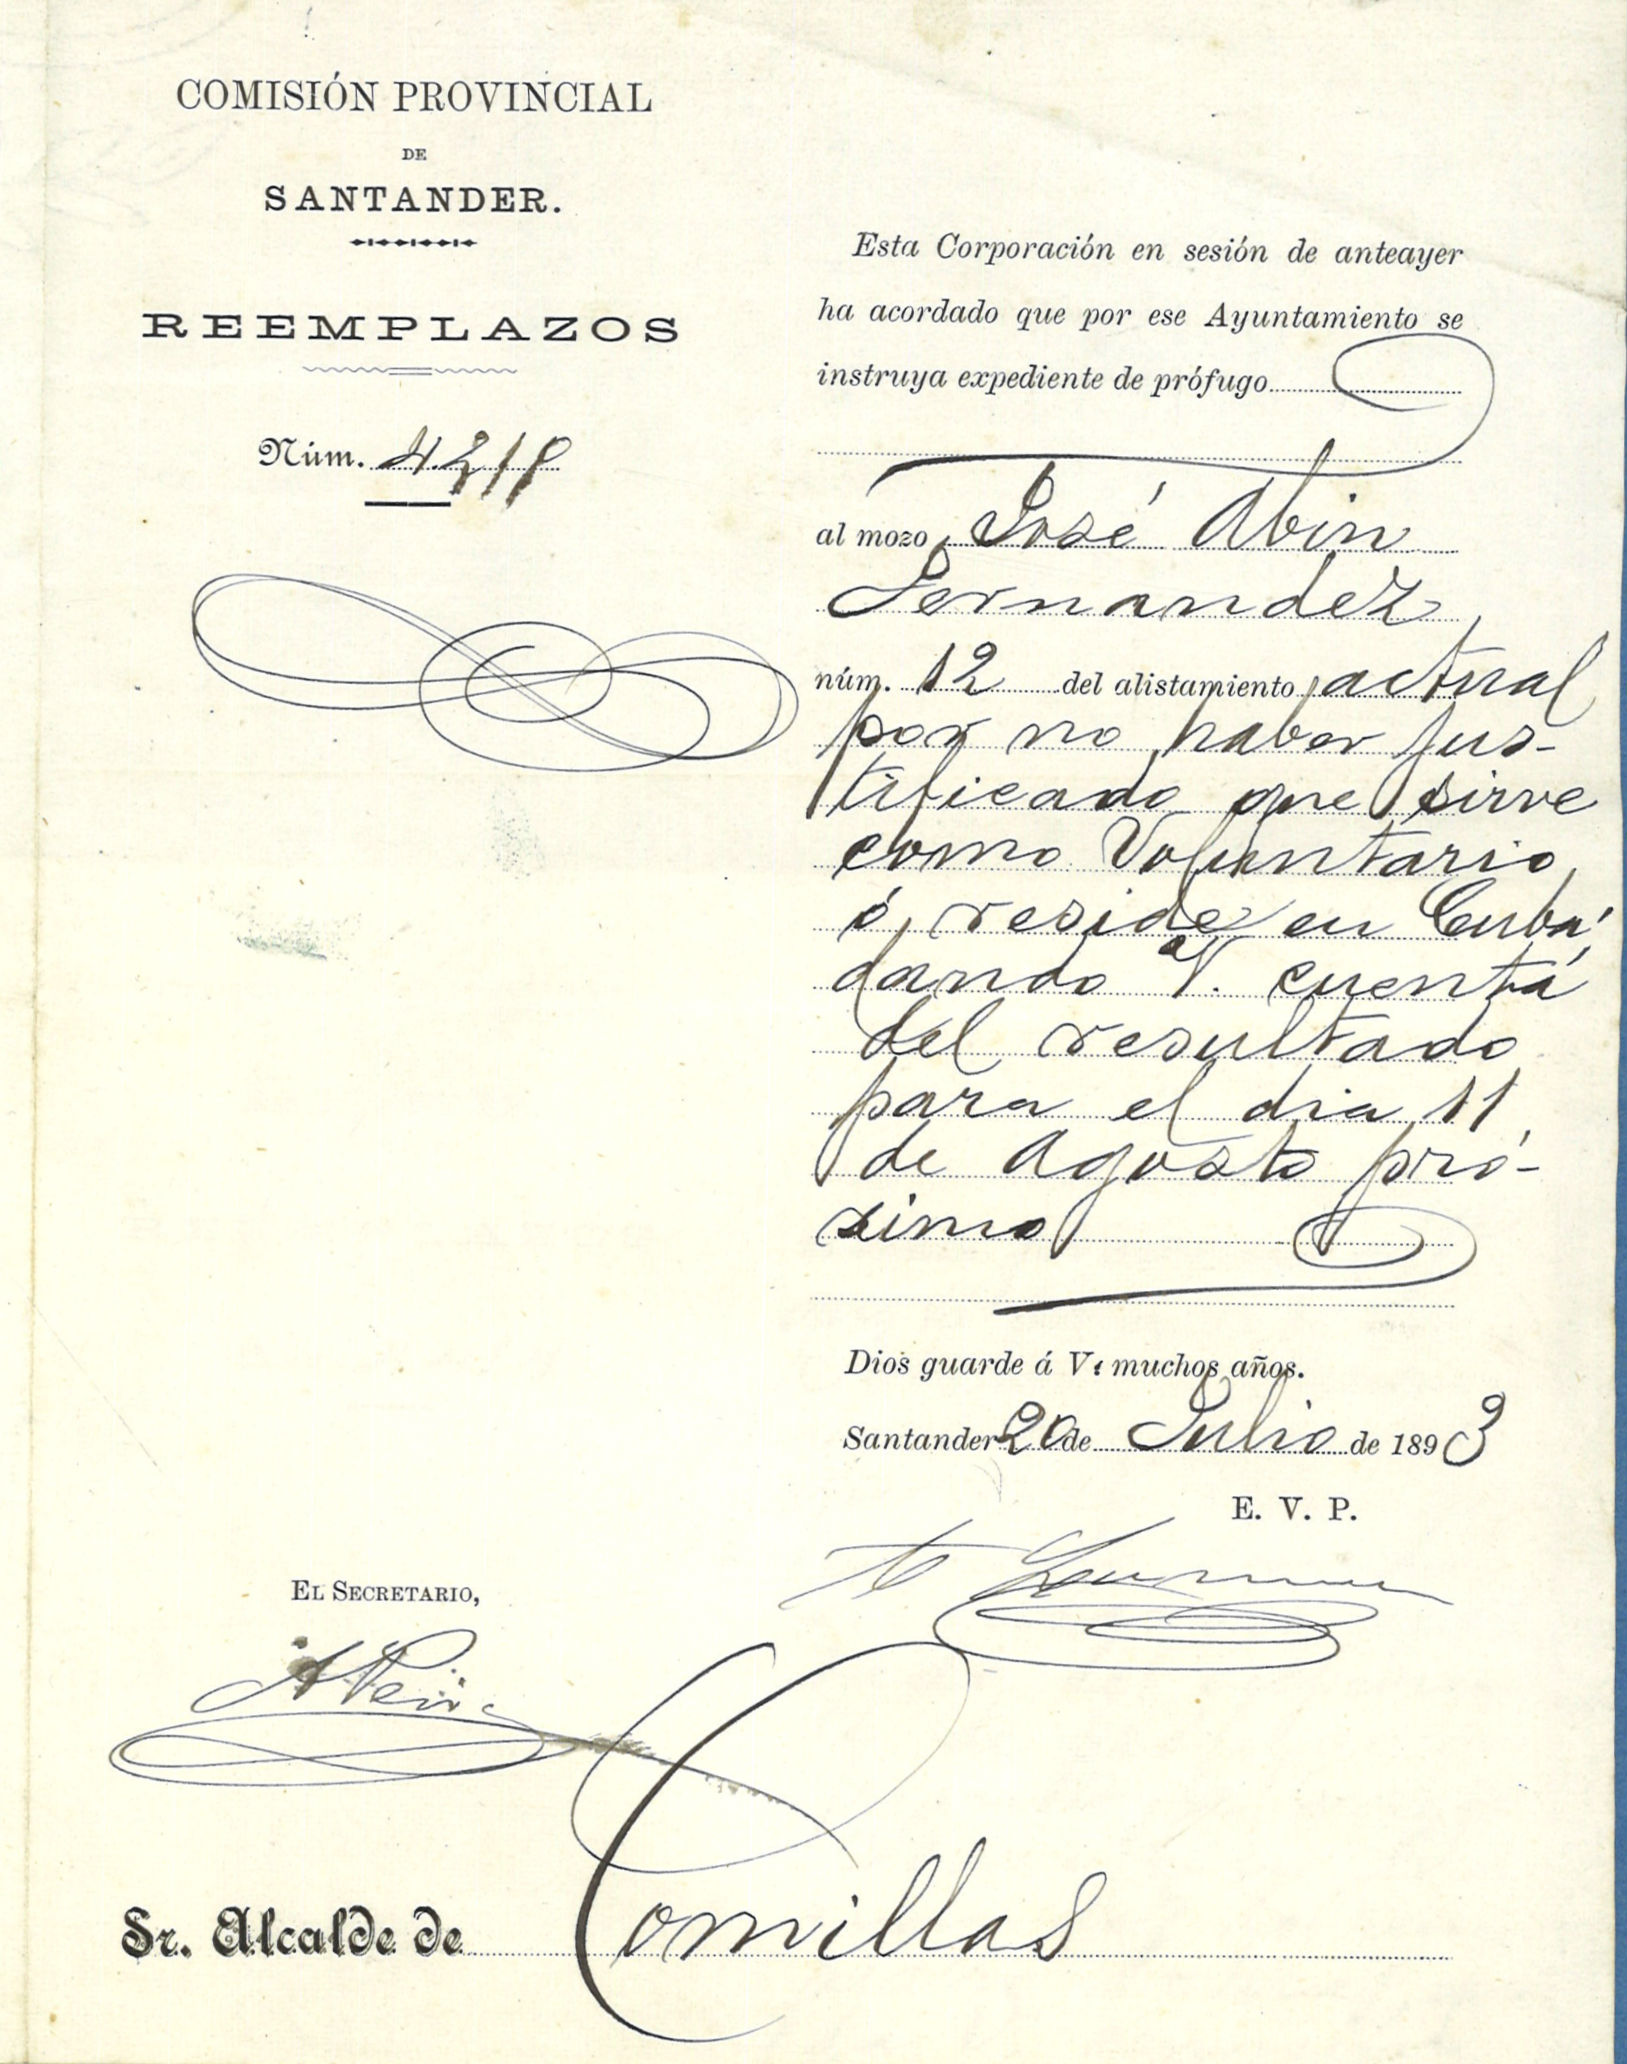 COMISIÓN PROVINCIAL
DE
SANTANDER.
REEMPLAZOS
Núm. 4.218
Esta Corporación en sesión de anteayer
ha acordado que por ese Ayuntamiento se
instruya expediente de prófugo
al mozo José Abin
Fernandez
núm. 12 del alistamiento actual
por no haber jus-
tificado que sirve
como Voluntario
ó reside en Cuba,
dando V. cuenta
del resultado
para el dia 11
de Agosto pró-
ximo
Dios guarde á V. muchos años.
Santander 20 de Julio de 1893
E. V. P.
EL SECRETARIO,
Sr. Alcalde de Comillas